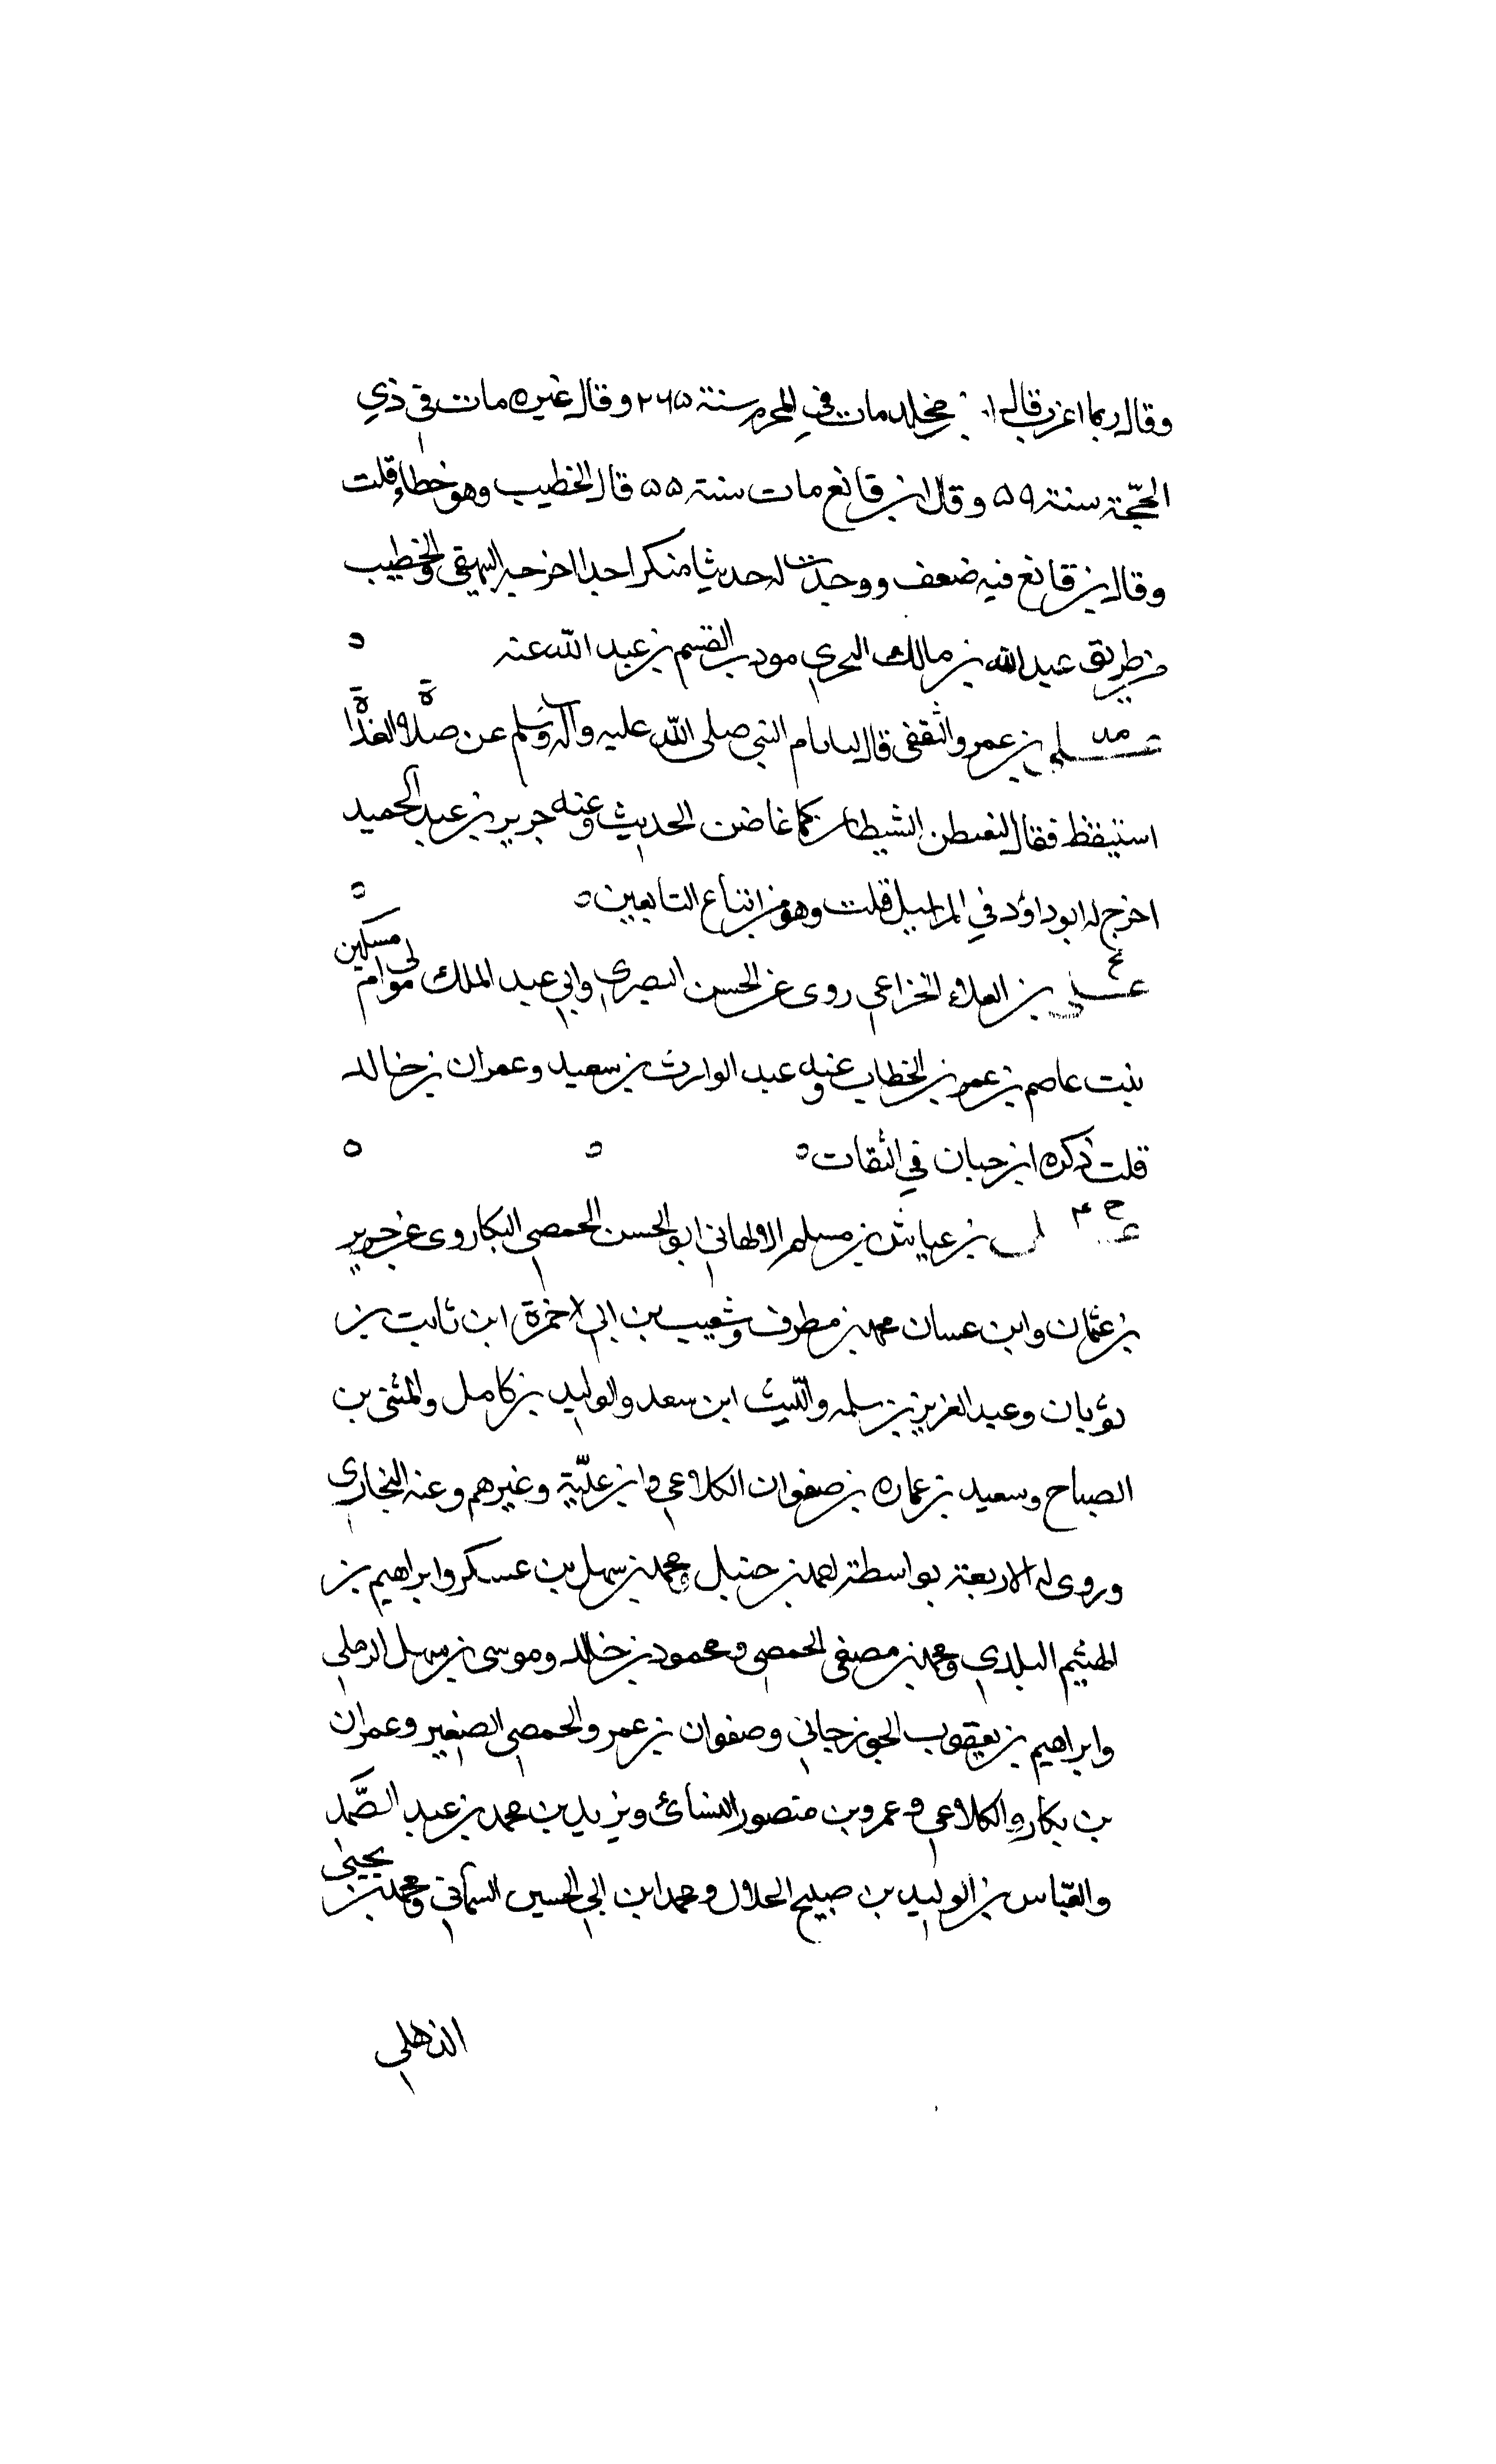 وقال ربما اغرب قال ابن مخلد مات في المحرم سنة ٢٦٥ وقال غيره مات في ذي
الحجّة سنة ٥٩ وقال ابن قانع مات سنة ٥٥ قال الخطيب وهو خطاء قلت
وقال ابن قانع فيه ضعف ووجدت له حديثا منكرا جدا اخرجه البيهقي والخطيب
من طريق عبد الله بن مالك مودب القسم بن عبد الله عنه
مد علي بن عمرو الثقفي قال لما نام النبي صلى الله عليه وآله وسلم عن صلاة الغداة
استيقظ فقال الشيطان كما غاضن الحديث وعنه جرير بن عبد الحميد
اخرج له ابو داؤد في المراسيل قلت وهو من اتباع التابعين
علي بن العلاء الخزاعي روى عن الحسن البصري وابي عبد الملك مولى ام مسكين
بنت عاصم بن عمر بن الخطاب وعنه عبد الوارث بن سعيد وعمران بن خالد
قلت ذكره ابن حبان في الثقات
خ ٤ علي بن عياش بن مسلم الالهاني ابو الحسن الحمصي البكا روى عن حريز
بن عثمان وابن عسان محمد بن مطرف وشعيب بن ابي حمزة ابن ثابت بن
ثوبان وعبد العزيز بن سلمه والليث ابن سعد والوليد بن كامل والمثنى بن
الصباح وسعيد بن عماره بن صفوان الكلاعي وابن عليّة وغيرهم وعنه البخاري
وروى له الاربعة بواسطة احمد بن حنبل ومحمد بن سهل بن عسكر وابراهيم بن
الهيثم البلدي ومحمد بن مصفى الحمصي ومحمود بن خالد وموسى بن سهل الرملي
وابراهيم بن يعقوب الجوزجاني وصفوان بن عمرو الحمصي الصغير وعمران
بن بكار والكلاعي وعمرو بن منصور النسائ ويزيد بن محمد بن عبد الصَّمد
والعبّاس بن الوليد بن صبيح الخلال ومحمد ابن ابي الحسين السماني ومحمد بن يحيى
الذهلي